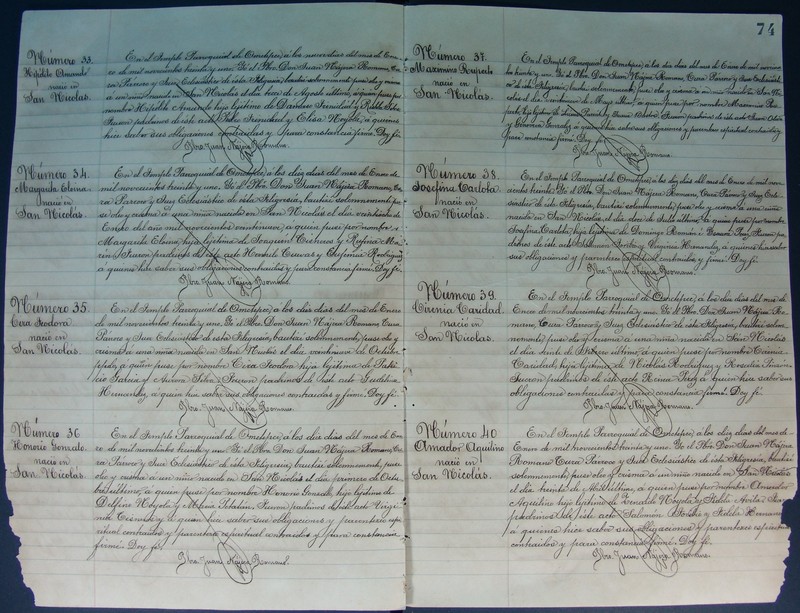 74
Número 33.
Hipólito Amando
nació en
San Nicolas.
En el Templo Parroquial de Ometepec, á los nueve días del mes de Ene-
ro de mil novecientos treinta y uno. Yo el Pbro. Don Juan Nájera Romano, Cu-
ra Párroco y Juez Eclesiástico de esta feligresía, bauticé solemnemente puse oleo y crisma
á un niño nacido en San Nicolas el día trece de Agosto último, á quien puse por
nombre Hipólito Amando hijo legítimo de Damian
Fueron padrinos de este acto y Elisa Noyola, á quienes
hice saber sus obligaciones contraídas y para constancia firmé. Doy fé.
Pbro. Juan Nájera Romano.
Número 34.
Margarita Eleina
nació en
San Nicolas.
En el Templo Parroquial de Ometepec, á los diez días del mes de Enero
de mil novecientos treinta y uno. Yo el Pbro. Don Juan Nájera Romano, Cu-
ra Párroco y Juez Eclesiástico de esta feligresía, bauticé solemnemente pu-
se oleo y crisma á una niña nacida en San Nicolas el día
Enero del año mil novecientos á quien puse por nombre
Margarita Eleina, hija legítima de Joaquin y Rufina Ma-
rin. Fueron padrinos de este acto Hercilo Cuevas y Rodriguez,
á quienes hice saber sus obligaciones contraídas y para constancia firmé. Doy fé.
Pbro. Juan Nájera Romano.
Número 35.
Cira Teodora
nació en
San Nicolás.
En el Templo Parroquial de Ometepec, á los diez días del mes de Enero
de mil novecientos treinta y uno. Yo el Pbro. Don Juan Nájera Romano Cura
Párroco y Juez Eclesiástico de esta feligresía, bauticé solemnemente, puse oleo y
crisma á una niña nacida en San Nicolás el día veintinueve de Octubre
ppdo., á quien puse por nombre Cira Teodora hija legítima de Patri-
cio Garcia y Aurora Silva. Fueron padrinos de este acto
Hernandez, á quien hice saber sus obligaciones contraídas y firmé. Doy fé.
Pbro. Juan Nájera Romano.
Número 36
Honorio Gonzalo.
nació en
San Nicolás.
En el Templo Parroquial de Ometepec, á los diez días del mes de Ene-
ro de mil novecientos treinta y uno. Yo el Pbro. Don Juan Nájera Romano, Cu-
ra Párroco y Juez Eclesiástico de esta feligresía, bauticé solemnemente, puse
oleo y crisma á un niño nacido en San Nicolas el día primero de Octu-
bre último, á quien puse por nombre Honorio Gonzalo, hijo legítimo de
Delfino Noyola y Maria Fueron padrinos de este acto Virgi-
nia á quien hice saber sus obligaciones y parentesco espi-
ritual contraídos y para constancia
firmé. Doy fé.
Pbro. Juan Nájera Romano.
Número 37.
Maximino Ruperto
nació en
San Nicolas.
En el Templo Parroquial de Ometepec, á los diez días del mes de Enero de mil novecien-
tos treinta y uno. Yo el Pbro. Don Juan Nájera Romano, Cura Párroco y Juez Eclesiásti-
co de esta feligresía, bauticé solemnemente, puse oleo y crisma á un niño nacido en San Nico-
las el día de Mayo último, á quien puse por nombre Maximino Ru-
perto, hijo legítimo de Fueron padrinos de este acto
y Gonzalez, á quienes hice saber sus obligaciones y parentesco espiritual contraídos y
para constancia firmé. Doy fé.
Pbro. Juan Nájera Romano.
Número 38.
Josefina Carlota
nació en
San Nicolás.
En el Templo Parroquial de Ometepec, á los diez días del mes de Enero de mil nove-
cientos treinta y uno. Yo el Pbro. Don Juan Nájera Romano Cura Párroco y Juez Ecle-
siástico de esta feligresía, bauticé solemnemente, puse oleo y crisma á una niña
nacida en San Nicolás, el día doce de último, á quien puse por nombre
Josefina Carlota, hija legítima de Domingo Román y Fueron pa-
drinos de este acto y Virginia Hernandez, á quienes hice saber
sus obligaciones y parentesco espiritual contraídos y firmé. Doy fé.
Pbro. Juan Nájera Romano.
Número 39.
Cirenia Caridad.
nació en
San Nicolás.
En el Templo Parroquial de Ometepec, á los diez días del mes de
Enero de mil novecientos treinta y uno. Yo el Pbro. Don Juan Nájera Ro-
mano, Cura Párroco y Juez Eclesiástico de esta feligresía, bauticé solem-
nemente, puse oleo y crisma á una niña nacida en San Nicolás
el día último, á quien puse por nombre Cirenia
Caridad, hija legítima de Nicolás Rodriguez y Rosalia
Fueron padrinos de este acto á quien hice saber sus
obligaciones contraídas y para constancia firmé. Doy fé.
Pbro. Juan Nájera Romano.
Número 40.
Amador Aquilino
nació en
San Nicolás.
En el Templo Parroquial de Ometepec, á los diez días del mes de
Enero de mil novecientos treinta y uno. Yo el Pbro. Don Juan Nájera
Romano Cura Párroco y Juez Eclesiástico de esta feligresía, bauticé
solemnemente, puse oleo y crisma á un niño nacido en San Nicolás
el día treinta de último, á quien puse por nombre Amador
Aquilino hijo legítimo de Noyola y Avila. Fueron
padrinos de este acto Salomón y
á quienes hice saber sus obligaciones y parentesco espiritual
contraídos y para constancia firmé. Doy fé.
Pbro. Juan Nájera Romano.